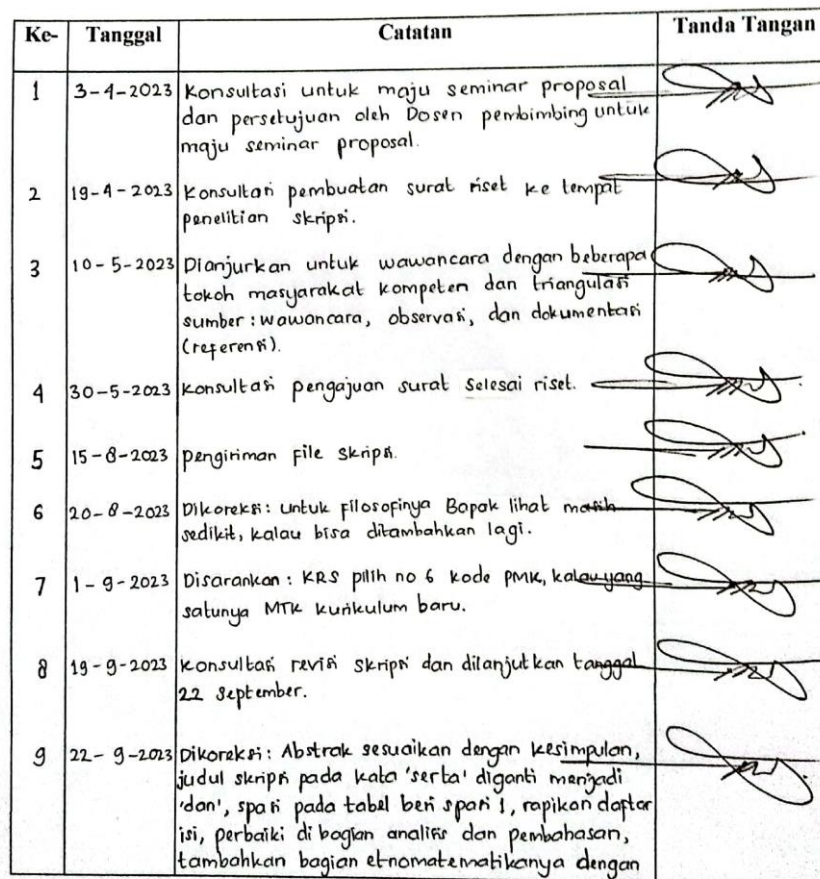 Ke- Tanggal Catatan Tanda Tangan
1 3-4-2023 Konsultasi untuk maju seminar proposal
dan persetujuan oleh Dosen pembimbing untuk
maju seminar proposal.
2 19-4-2023 Konsultasi pembuatan surat riset ke tempat
penelitian skripsi.
3 10-5-2023 Dianjurkan untuk wawancara dengan beberapa
tokoh masyarakat kompeten dan triangulasi
sumber: wawancara, observasi, dan dokumentasi
(referensi).
4 30-5-2023 Konsultasi pengajuan surat selesai riset.
5 15-8-2023 pengiriman file skripsi.
6 20-8-2023 Dikoreksi: untuk filosofinya Bapak lihat masih
sedikit, kalau bisa ditambahkan lagi.
7 1-9-2023 Disarankan: KRS pilih no 6 kode PMK, kalau yang
satunya MTK kurikulum baru.
8 19-9-2023 Konsultasi revisi skripsi dan dilanjutkan tanggal
22 september.
9 22-9-2023 Dikoreksi: Abstrak sesuaikan dengan kesimpulan,
judul skripsi pada kata 'serta' diganti menjadi
'dan', spasi pada tabel beri spasi 1, rapikan daftar
isi, perbaiki di bagian analisis dan pembahasan,
tambahkan bagian etnomatematikanya dengan